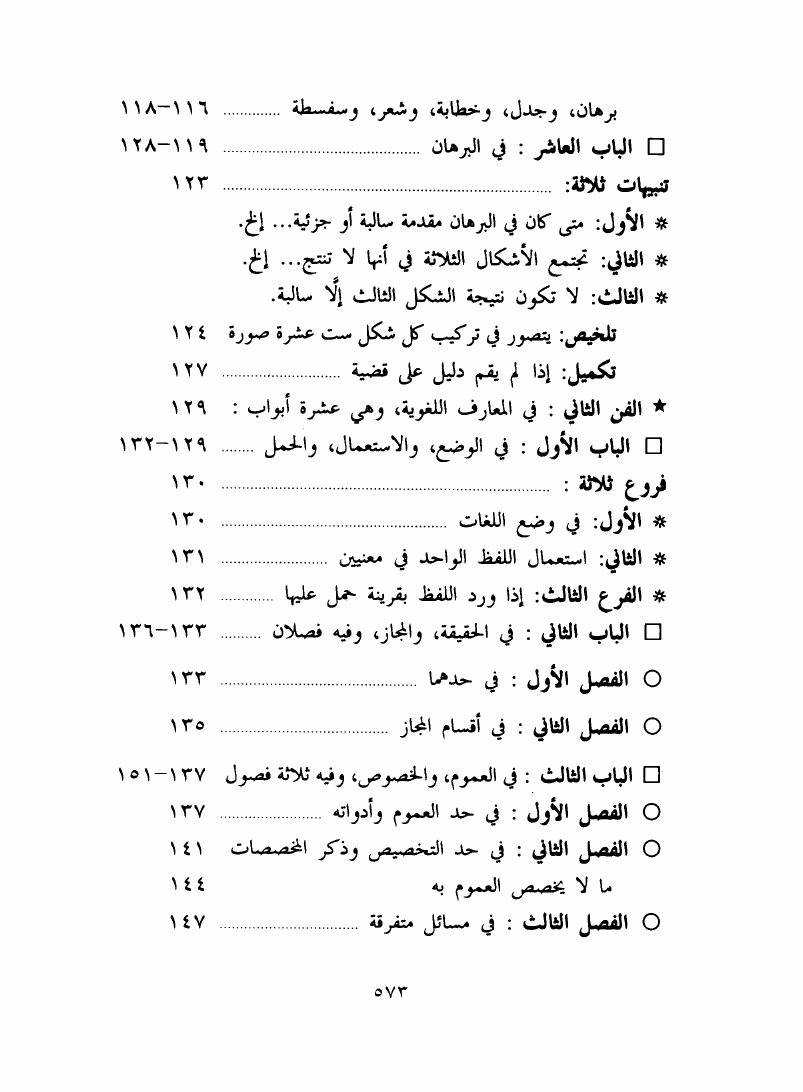 برهان، وجدل، وخطابة، وشعر، وسفسطة .............. ١١٦-١١٨
□ الباب العاشر : في البرهان .............. ١١٩-١٢٨
تنبيهات ثلاثة: .............. ١٢٣
* الأول: متى كان في البرهان مقدمة سالبة أو جزئية... إلخ.
* الثاني: تجتمع الأشكال الثلاثة في أنها لا تنتج... إلخ.
* الثالث: لا تكون نتيجة الشكل الثالث إلَّا سالبة.
تلخيص: يتصور في تركيب كل شكل ست عشرة صورة ١٢٤
تكميل: إذا لم يقم دليل على قضية .............. ١٢٧
★ الفن الثاني : في المعارف اللغوية، وهي عشرة أبواب : ١٢٩
□ الباب الأول : في الوضع، والاستعمال، والحمل ........ ١٢٩-١٣٢
فروع ثلاثة : .............. ١٣٠
* الأول: في وضع اللغات .............. ١٣٠
* الثاني: استعمال اللفظ الواحد في معنيين .............. ١٣١
* الفرع الثالث: إذا ورد اللفظ بقرينة حمل عليها ............. ١٣٢
□ الباب الثاني : في الحقيقة، والمجاز، وفيه فصلان .......... ١٣٣-١٣٦
○ الفصل الأول : في حدهما .............. ١٣٣
○ الفصل الثاني : في أقسام المجاز .............. ١٣٥
□ الباب الثالث : في العموم، والخصوص، وفيه ثلاثة فصول ١٣٧-١٥١
○ الفصل الأول : في حد العموم وأدواته .............. ١٣٧
○ الفصل الثاني : في حد التخصيص وذكر المخصصات ١٤١
ما لا يخصص العموم به ١٤٤
○ الفصل الثالث : في مسائل متفرقة .............. ١٤٧
٥٧٣